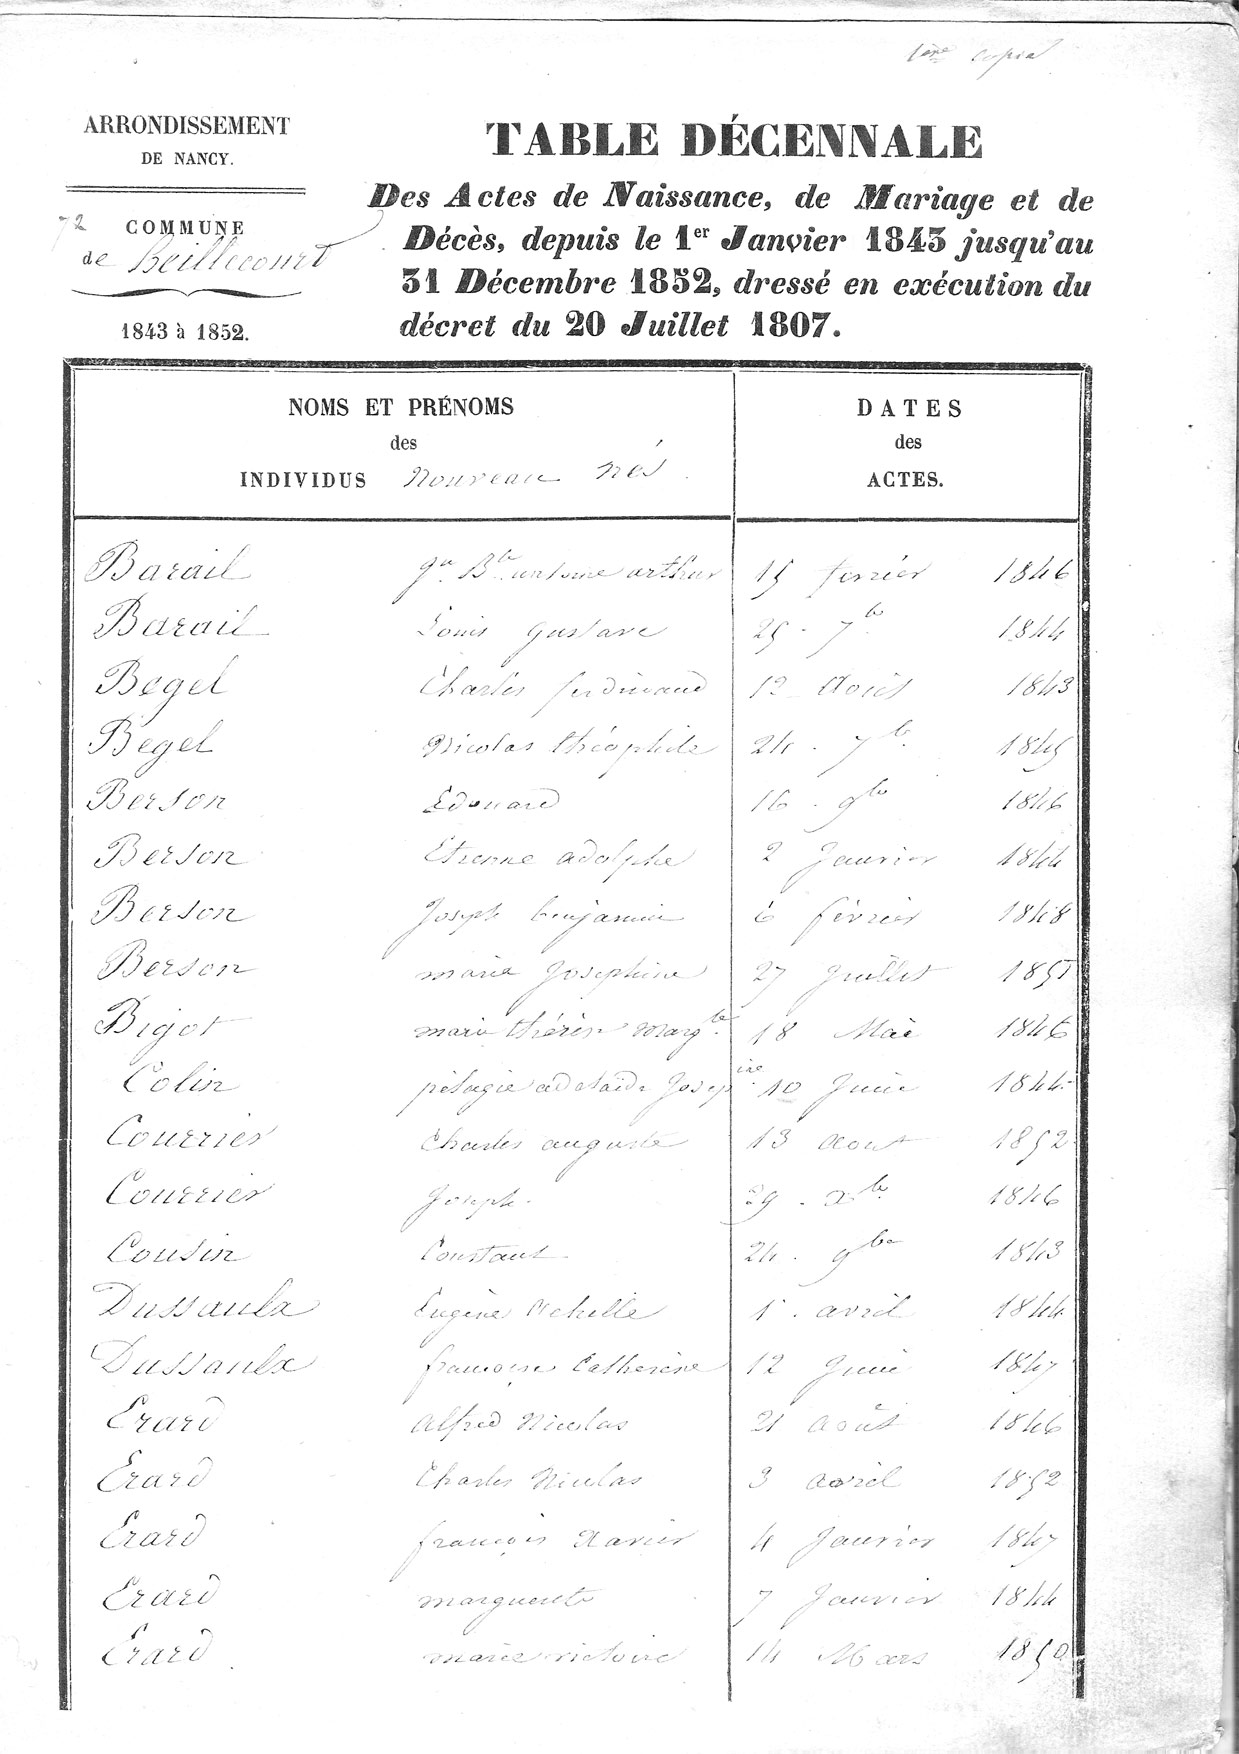 1ère copie
ARRONDISSEMENT
DE NANCY.
72
COMMUNE
de Heillecourt
1843 à 1852.
TABLE DÉCENNALE
Des Actes de Naissance, de Mariage et de
Décès, depuis le 1er Janvier 1843 jusqu'au
31 Décembre 1852, dressé en exécution du
décret du 20 Juillet 1807.
NOMS ET PRÉNOMS
des
INDIVIDUS Nouveau Nés.
DATES
des
ACTES.
Barail Jn Bte antoine arthur 15 fevrier 1846
Barail Louis Gustave 25 - 7bre 1844
Begel Charles ferdinand 12 Août 1843
Begel Nicolas théophile 24 - 7bre 1845
Berson Edouard 16 - 9bre 1846
Berson Etienne adolphe 2 Janvier 1844
Berson Joseph benjamin 6 février 1848
Berson marie Josephine 27 Juillet 1851
Bigot marie thérèse Margte 18 Mai 1846
Colin pélagie adelaïde Josephine 10 Juin 1844
Courrier Charles auguste 13 aout 1852
Courrier Joseph 29 - Xbre 1846
Cousin Constant 24 - 9bre 1843
Dussaulx Eugène Achille 1er avril 1844
Dussaulx francoise Catherine 12 Juin 1847
Erard Alfred Nicolas 21 août 1846
Erard Charles Nicolas 3 avril 1852
Erard françois Xavier 4 Janvier 1847
Erard marguerite 7 Janvier 1844
Erard marie victoire 14 Mars 1850